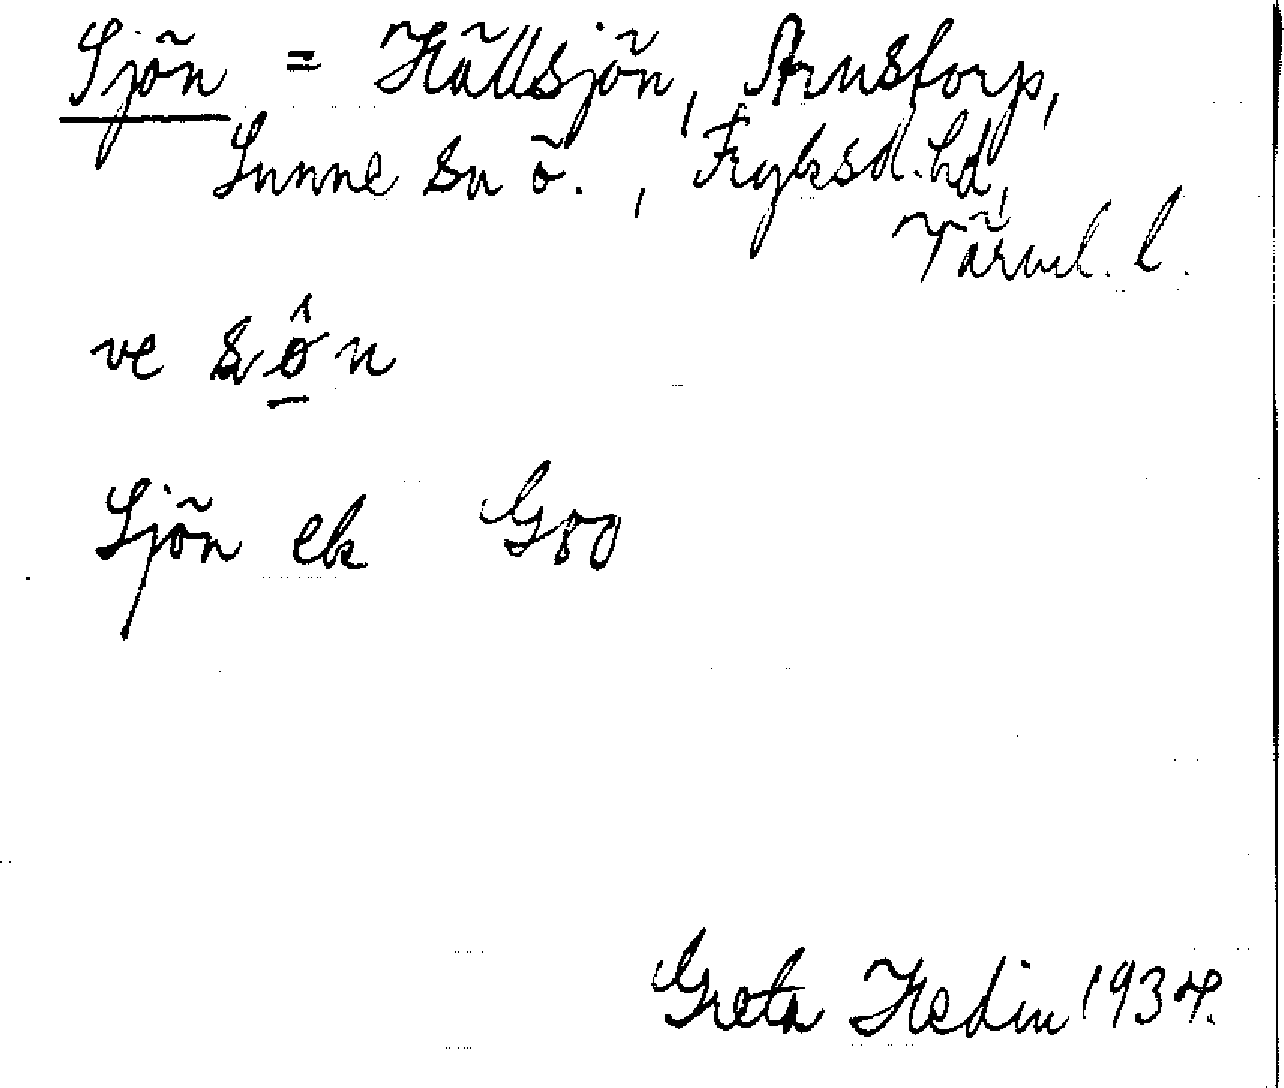 Sjön = Hällsjön, Arnstorp,
Sunne sn ö., Fryksd. hd,
Värml. l.
ve sô̱n
Sjön ek G80
Greta Hedin 1934.